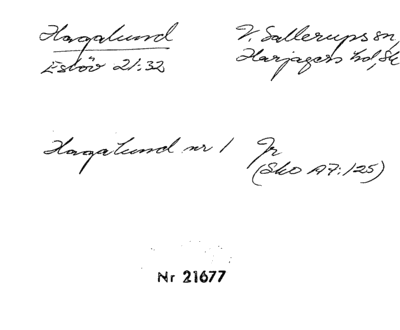 Hagalund V. Sallerups sn,
Eslöv 21:32 Harjagers hd, Sk
Hagalund nr 1 Jr
(Sko A7:125)
Nr 21677